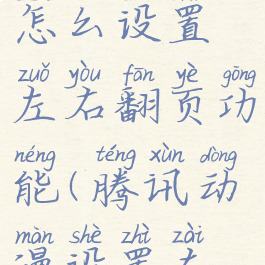 怎么设置
zuǒ yòu fān yè gōng
左右翻页功
néng téng xùn dòng
能(腾讯动
màn shè zhì zài
漫设置在